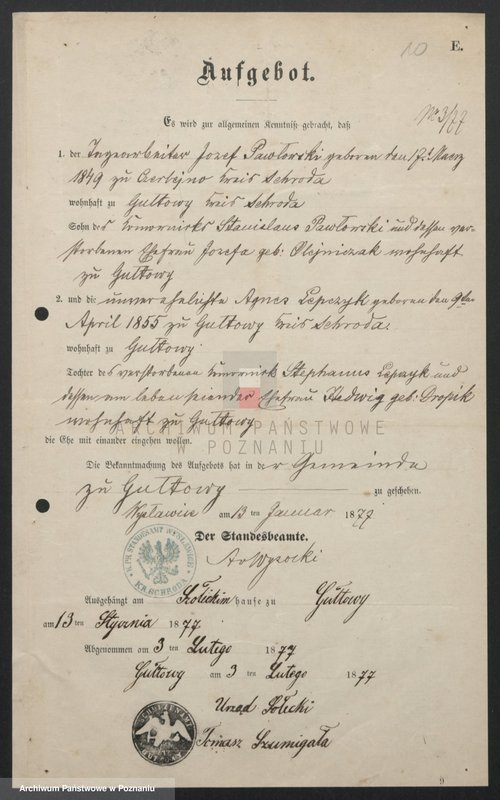 10
E.
Aufgebot.
Nº 3/77
Es wird zur allgemeinen Kenntniß gebracht, daß
1. der Tagearbeiter Jozef Pawłowski geboren den 17t Maerz
1849 zu Czerlejno Kreis Schroda
wohnhaft zu Gultowy Kreis Schroda
Sohn des Komorniks Stanislaus Pawłowski und dessen ver-
storbenen Ehefrau Josefa geb: Olejniczak wohnhaft
zu Gultowy
2. und die unverehelichte Agnes Lepczyk geboren den 9ten
April 1855 zu Gultowy Kreis Schroda.
wohnhaft zu Gultowy
Tochter des verstorbenen Komornick Stephanus Lepczyk und
dessen am leben seiender Ehefrau Hedwig geb: Dropik
wohnhaft zu Gultowy
die Ehe mit einander eingehen wollen.
ARCHIWUM PAŃSTWOWE
W POZNANIU
Die Bekanntmachung des Aufgebots hat in der Gemeinde
zu Gultowy zu geschehen.
am 13 ten Januar 1877
Der Standesbeamte.
AvWysocki
KR. SCHRODA
Ausgehängt am Sołeckim hause zu Gułtowy
am 13 ten Stycznia 1877
Abgenommen am 3 ten Lutego 1877
Gułtowy am 3 ten Lutego 1877
Urząd Sołecki
Tomasz Szumigała
9
Archiwum Państwowe w Poznaniu